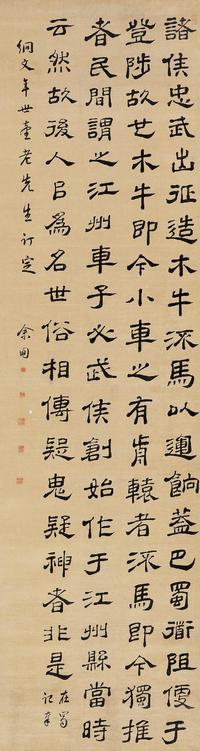 諸侯忠武出征造木牛流馬以運餉蓋巴蜀衜阻便于
登陟故也木牛即今小車之有歬轅者流馬即今獨推
者民間謂之江州車子必武侯創始作于江州縣當時
云然故後人㠯為名世俗相傳疑鬼疑神者非是 在蜀記
絅文年世臺老先生訂定 余